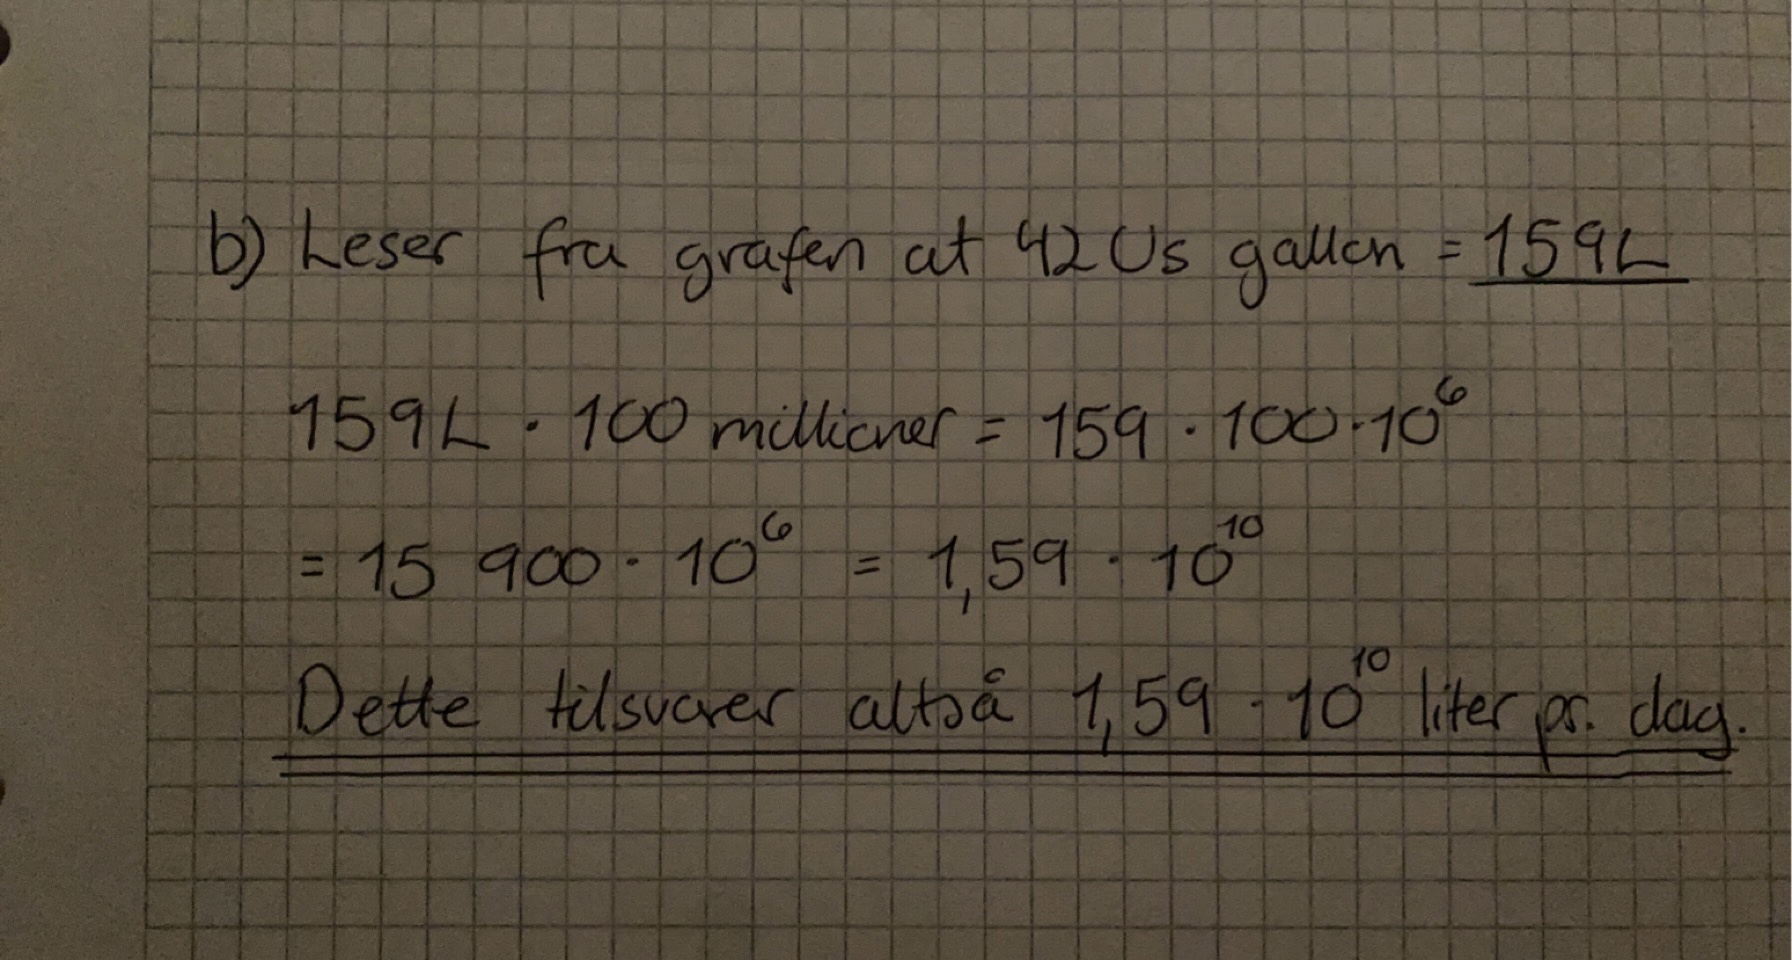 b) Leser fra grafen at 42 Us gallon = 159L
159L · 100 millioner = 159 · 100 · 10⁶
= 15 900 · 10⁶ = 1,59 · 10¹⁰
Dette tilsvarer altså 1,59 · 10¹⁰ liter pr. dag.